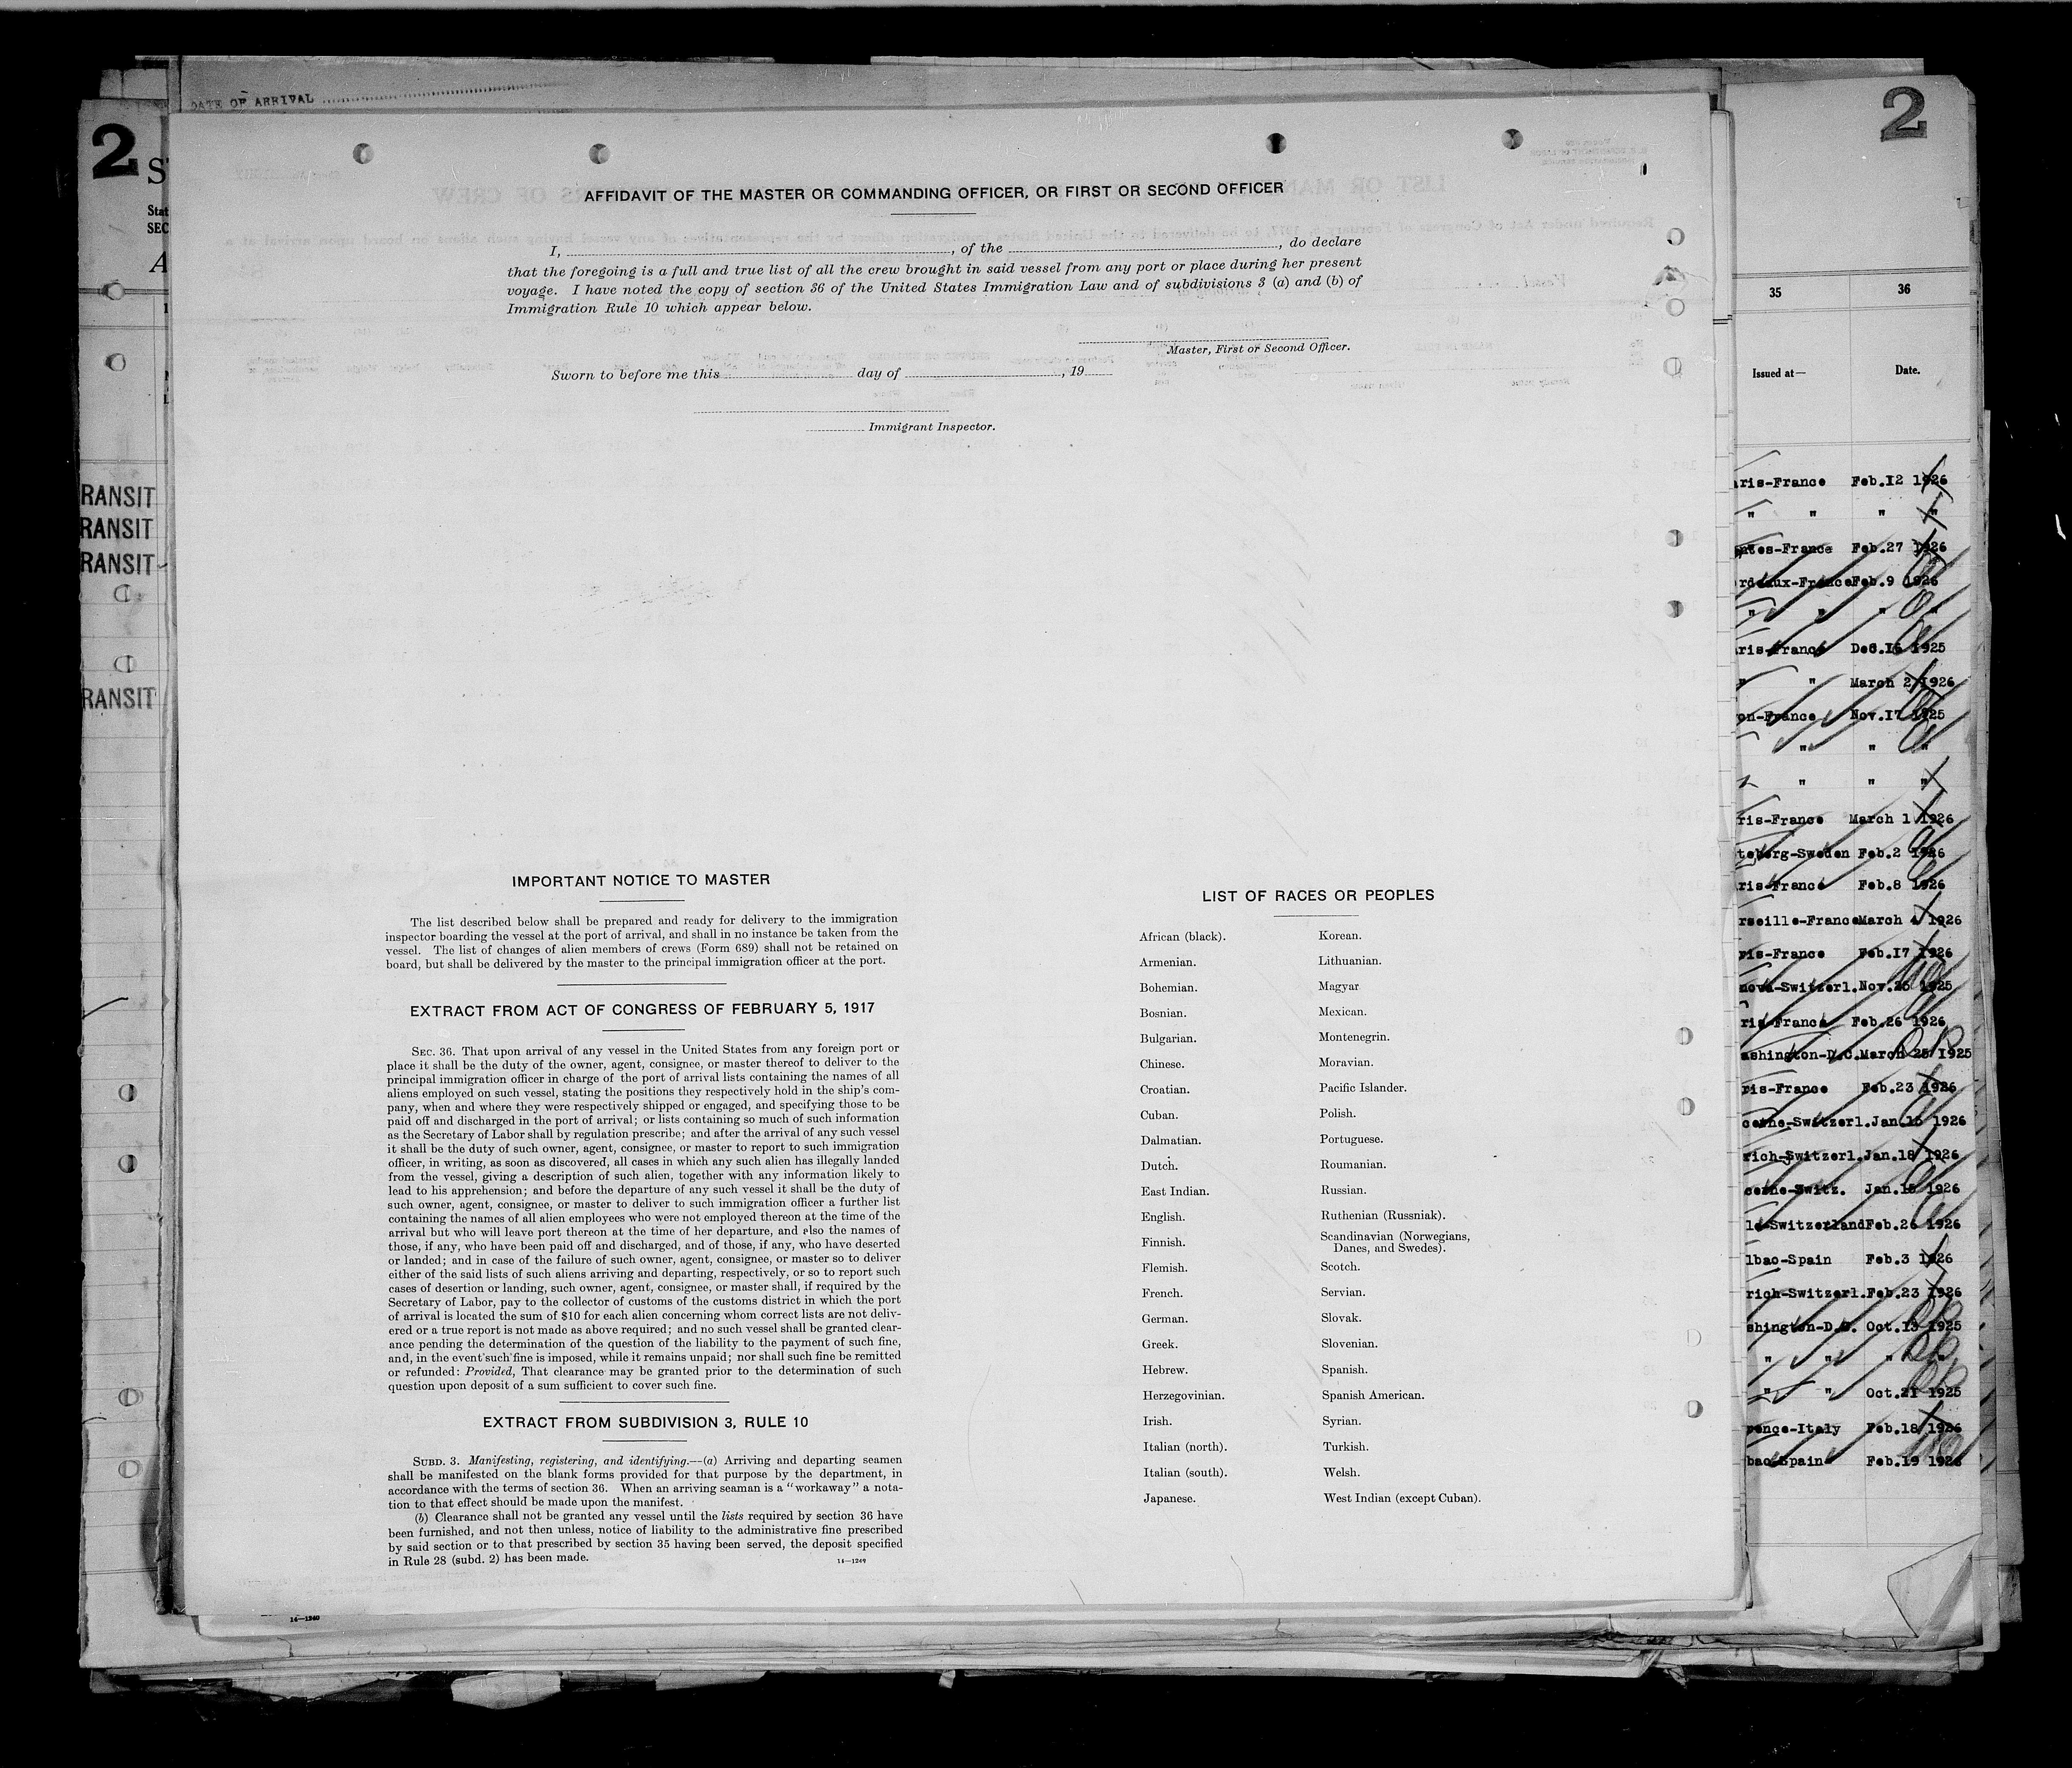 DATE OF ARRIVAL
2
2
AFFIDAVIT OF THE MASTER OR COMMANDING OFFICER, OR FIRST OR SECOND OFFICER
I, , of the , do declare
that the foregoing is a full and true list of all the crew brought in said vessel from any port or place during her present
voyage. I have noted the copy of section 36 of the United States Immigration Law and of subdivisions 3 (a) and (b) of
Immigration Rule 10 which appear below.
Master, First or Second Officer.
Sworn to before me this day of , 19
Immigrant Inspector.
IMPORTANT NOTICE TO MASTER
The list described below shall be prepared and ready for delivery to the immigration
inspector boarding the vessel at the port of arrival, and shall in no instance be taken from the
vessel. The list of changes of alien members of crews (Form 689) shall not be retained on
board, but shall be delivered by the master to the principal immigration officer at the port.
EXTRACT FROM ACT OF CONGRESS OF FEBRUARY 5, 1917
SEC. 36. That upon arrival of any vessel in the United States from any foreign port or
place it shall be the duty of the owner, agent, consignee, or master thereof to deliver to the
principal immigration officer in charge of the port of arrival lists containing the names of all
aliens employed on such vessel, stating the positions they respectively hold in the ship's com-
pany, when and where they were respectively shipped or engaged, and specifying those to be
paid off and discharged in the port of arrival; or lists containing so much of such information
as the Secretary of Labor shall by regulation prescribe; and after the arrival of any such vessel
it shall be the duty of such owner, agent, consignee, or master to report to such immigration
officer, in writing, as soon as discovered, all cases in which any such alien has illegally landed
from the vessel, giving a description of such alien, together with any information likely to
lead to his apprehension; and before the departure of any such vessel it shall be the duty of
such owner, agent, consignee, or master to deliver to such immigration officer a further list
containing the names of all alien employees who were not employed thereon at the time of the
arrival but who will leave port thereon at the time of her departure, and also the names of
those, if any, who have been paid off and discharged, and of those, if any, who have deserted
or landed; and in case of the failure of such owner, agent, consignee, or master so to deliver
either of the said lists of such aliens arriving and departing, respectively, or so to report such
cases of desertion or landing, such owner, agent, consignee, or master shall, if required by the
Secretary of Labor, pay to the collector of customs of the customs district in which the port
of arrival is located the sum of $10 for each alien concerning whom correct lists are not deliv-
ered or a true report is not made as above required; and no such vessel shall be granted clear-
ance pending the determination of the question of the liability to the payment of such fine,
and, in the event such fine is imposed, while it remains unpaid; nor shall such fine be remitted
or refunded: Provided, That clearance may be granted prior to the determination of such
question upon deposit of a sum sufficient to cover such fine.
EXTRACT FROM SUBDIVISION 3, RULE 10
SUBD. 3. Manifesting, registering, and identifying.—(a) Arriving and departing seamen
shall be manifested on the blank forms provided for that purpose by the department, in
accordance with the terms of section 36. When an arriving seaman is a "workaway" a nota-
tion to that effect should be made upon the manifest.
(b) Clearance shall not be granted any vessel until the lists required by section 36 have
been furnished, and not then unless, notice of liability to the administrative fine prescribed
by said section or to that prescribed by section 35 having been served, the deposit specified
in Rule 28 (subd. 2) has been made.
14—1249
LIST OF RACES OR PEOPLES
African (black).
Armenian.
Bohemian.
Bosnian.
Bulgarian.
Chinese.
Croatian.
Cuban.
Dalmatian.
Dutch.
East Indian.
English.
Finnish.
Flemish.
French.
German.
Greek.
Hebrew.
Herzegovinian.
Irish.
Italian (north).
Italian (south).
Japanese.
Korean.
Lithuanian.
Magyar
Mexican.
Montenegrin.
Moravian.
Pacific Islander.
Polish.
Portuguese.
Roumanian.
Russian.
Ruthenian (Russniak).
Scandinavian (Norwegians,
Danes, and Swedes).
Scotch.
Servian.
Slovak.
Slovenian.
Spanish.
Spanish American.
Syrian.
Turkish.
Welsh.
West Indian (except Cuban).
RANSIT
RANSIT
RANSIT
RANSIT
35 36
Issued at— Date.
ris-France Feb.12 1926
" " " "
ntes-France Feb.27 1926
rdeaux-France Feb.9 1926
" " " "
ris-France Dec.16 1925
" " March 2 1926
on-France Nov.17 1925
" " "
" " "
ris-France March 1 1926
teborg-Sweden Feb.2 1926
ris-France Feb.8 1926
rseille-France March 4 1926
ris-France Feb.17 1926
nova-Switzerl. Nov.25 1925
ris-France Feb.26 1926
ashington-D.C. March 25 1925
ris-France Feb.23 1926
cerne-Switzerl. Jan.15 1926
rich-Switzerl. Jan.18 1926
cerne-Switz. Jan.15 1926
le-Switzerland Feb.26 1926
lbao-Spain Feb.3 1926
rich-Switzerl. Feb.23 1926
shington-D.C. Oct.13 1925
" " "
" " Oct.21 1925
rence-Italy Feb.18 1926
bao-Spain Feb.19 1926
14—1240